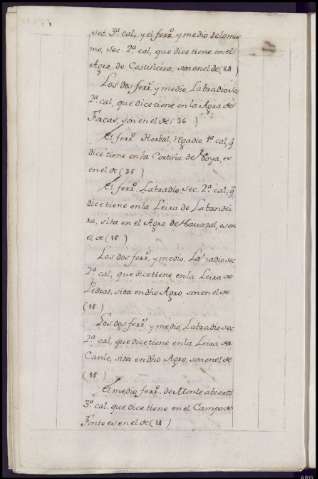 sec. 3ª cal. y el ferr.º y medio de lo mis
mo, sec. 2ª cal, que dice tiene en el
Agro de Castiñeira, son en el de (28)
Los dos ferr.º y medio Labradio Sec.
2ª cal, que dice tiene en la Agra de
Facas, son en el de (36)
El ferr.º Hortal, regadio 1ª cal, q.
dice tiene en la Cortiña de Doya, es
en el de (35)
El ferr.º Labradio Sec. 2ª cal, q.
dice tiene en la Leira de
sita en el Agro de es en
el de (18)
Los dos ferr.º y medio Labradio sec.
2ª cal, que dice tiene en la Leira de
Pedras, sita en dho Agro son en el de
(18)
Los dos ferr.º y medio Labradio sec.
2ª cal, que dice tiene en la Leira de
Canle, sita en dho Agro, son en el de
(18)
El medio ferr.º de Monte abierto
3ª cal. que dice tiene en el Campo de
Fonte es en el de (28)